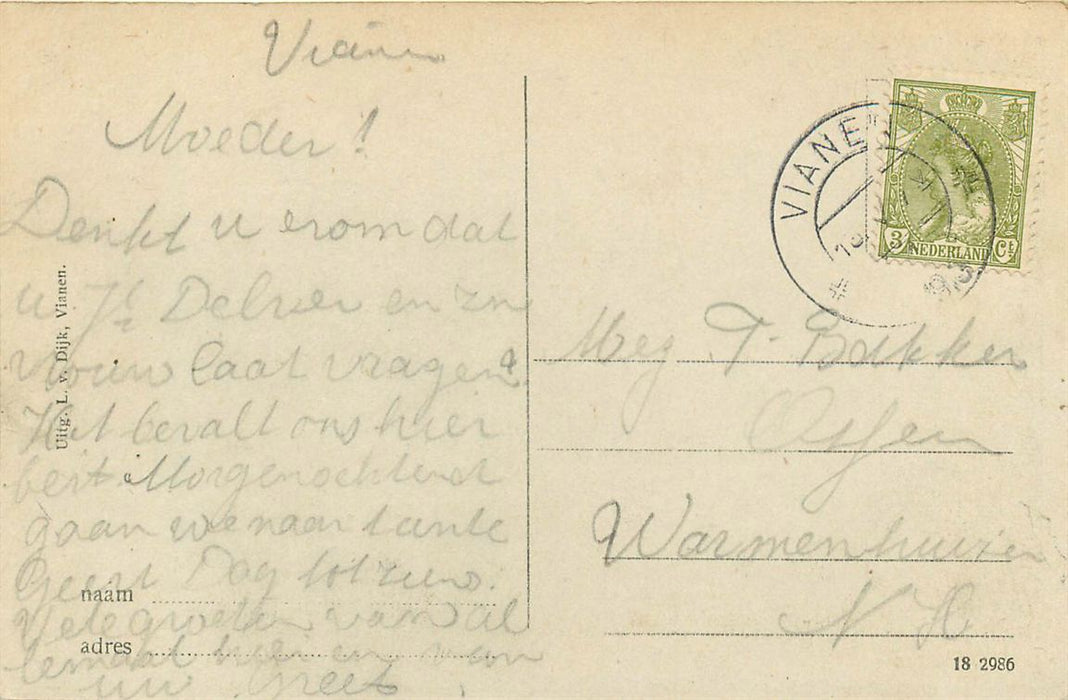 Vianen
Moeder!
Denkt u erom dat
u Delver en zn
vrouw laat vragen
Het bevalt ons hier
best Morgenochtend
gaan we naar tante
Geert Dag tot ziens.
Vele groeten van al
lemaal hier en van
uw Greet
Uitg. L. v. Dijk, Vianen.
naam
adres
VIANEN
3 Ct
NEDERLAND
Mej T. Bakker
Warmenhuizen
N H
18 2986